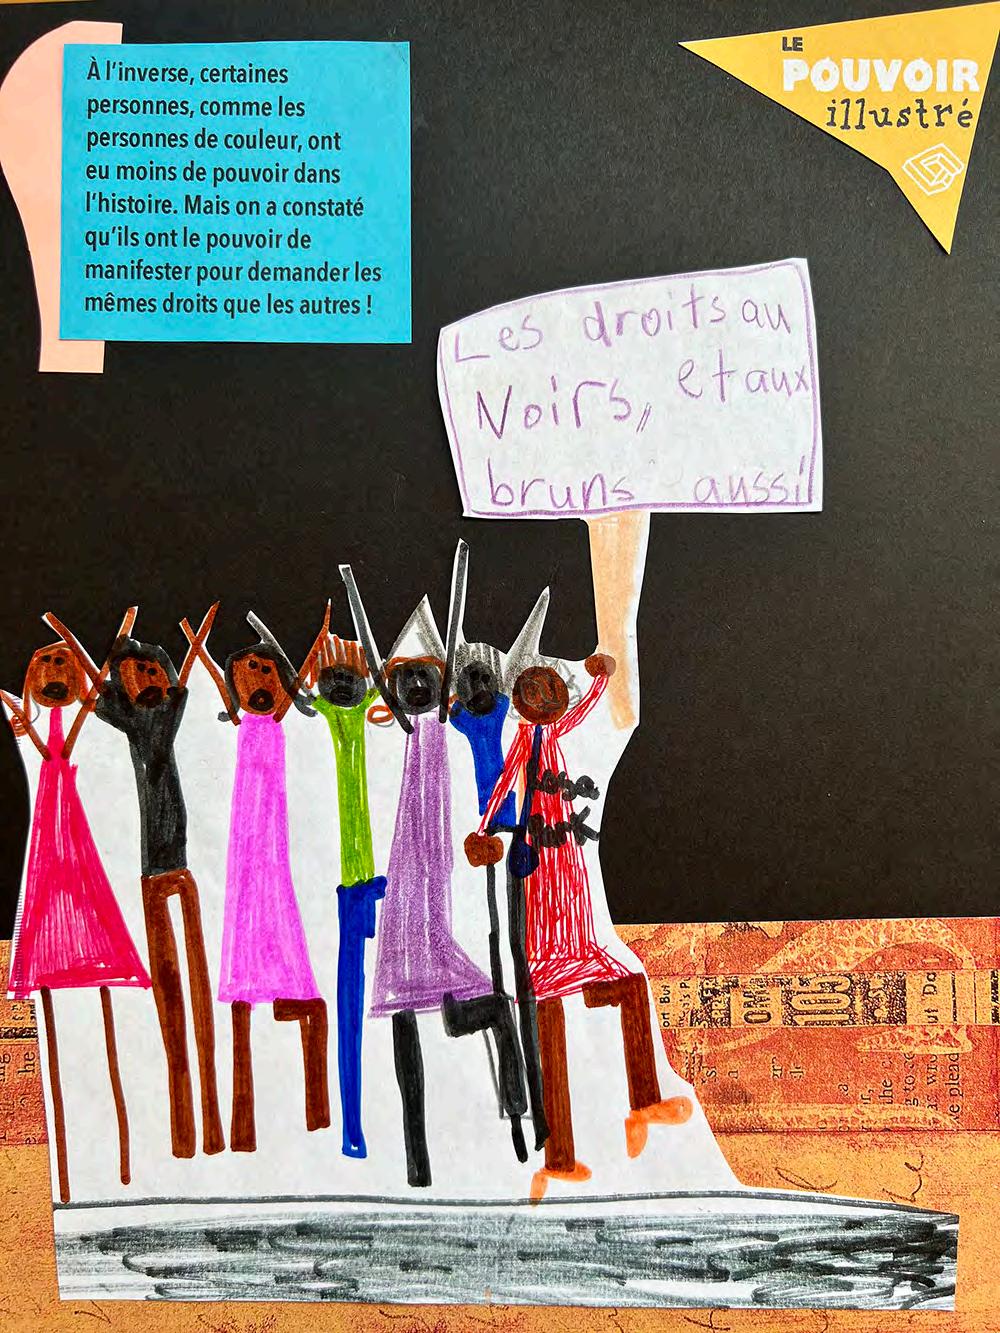 À l'inverse, certaines
personnes, comme les
personnes de couleur, ont
eu moins de pouvoir dans
l'histoire. Mais on a constaté
qu'ils ont le pouvoir de
manifester pour demander les
mêmes droits que les autres !
LE
POUVOIR
illustré
Les droits au
Noirs, et aux
bruns aussi